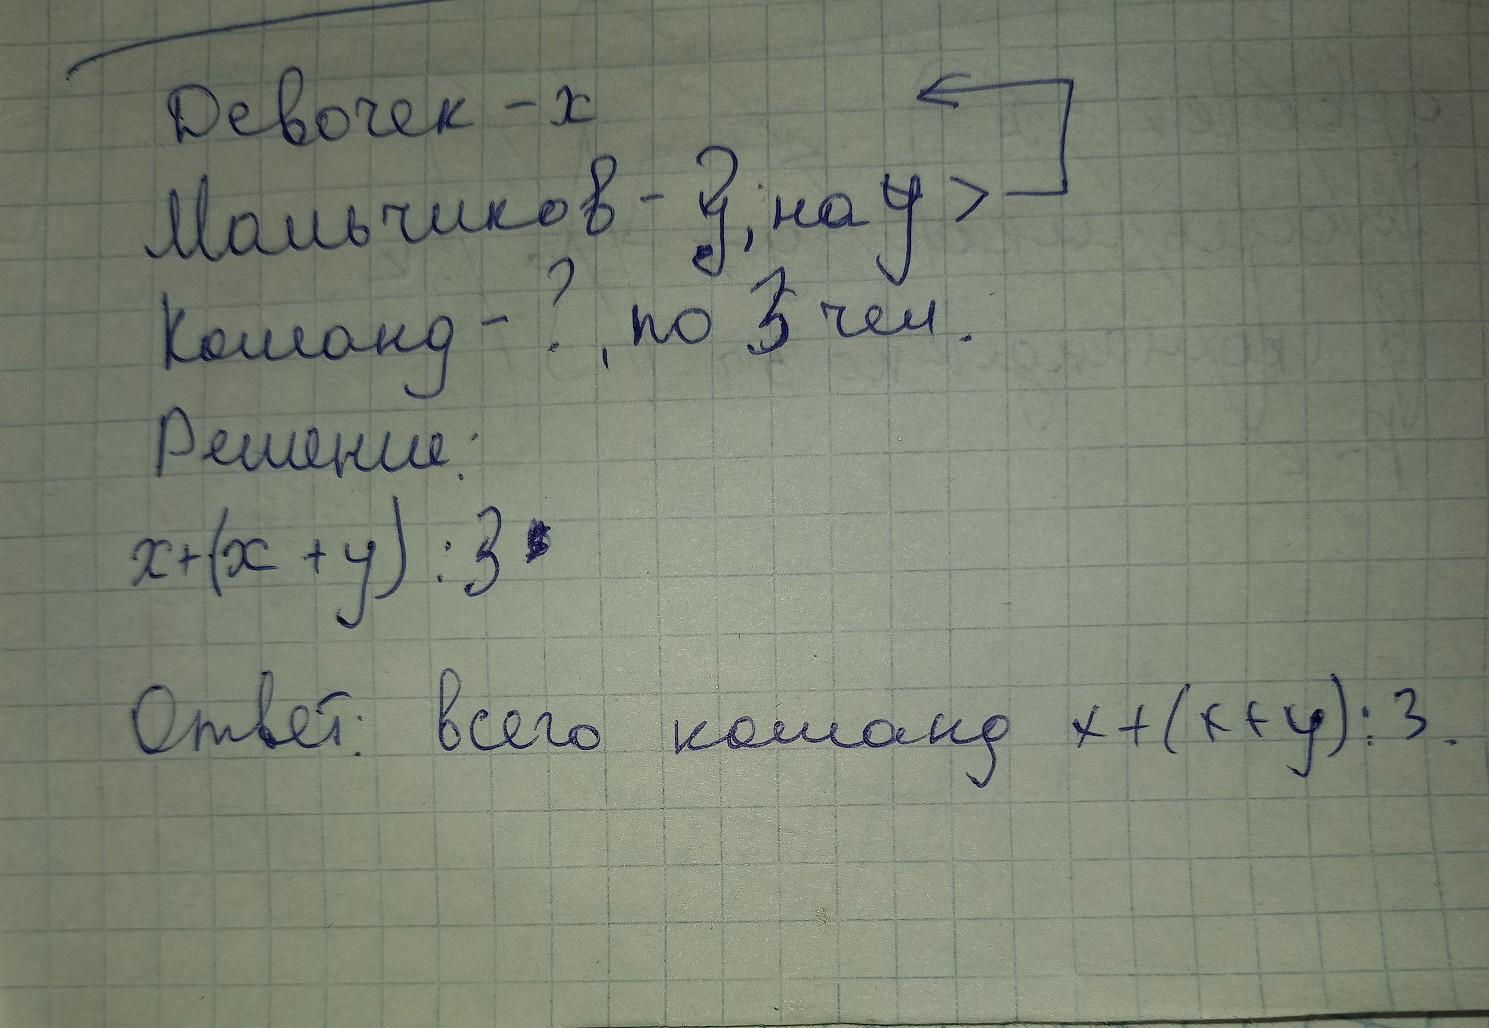 Девочек - х
Мальчиков - ?, на у >
Команд - ?, по 3 чел.
Решение:
х+(х + у) : 3
Ответ: всего команд х+(х+у):3.